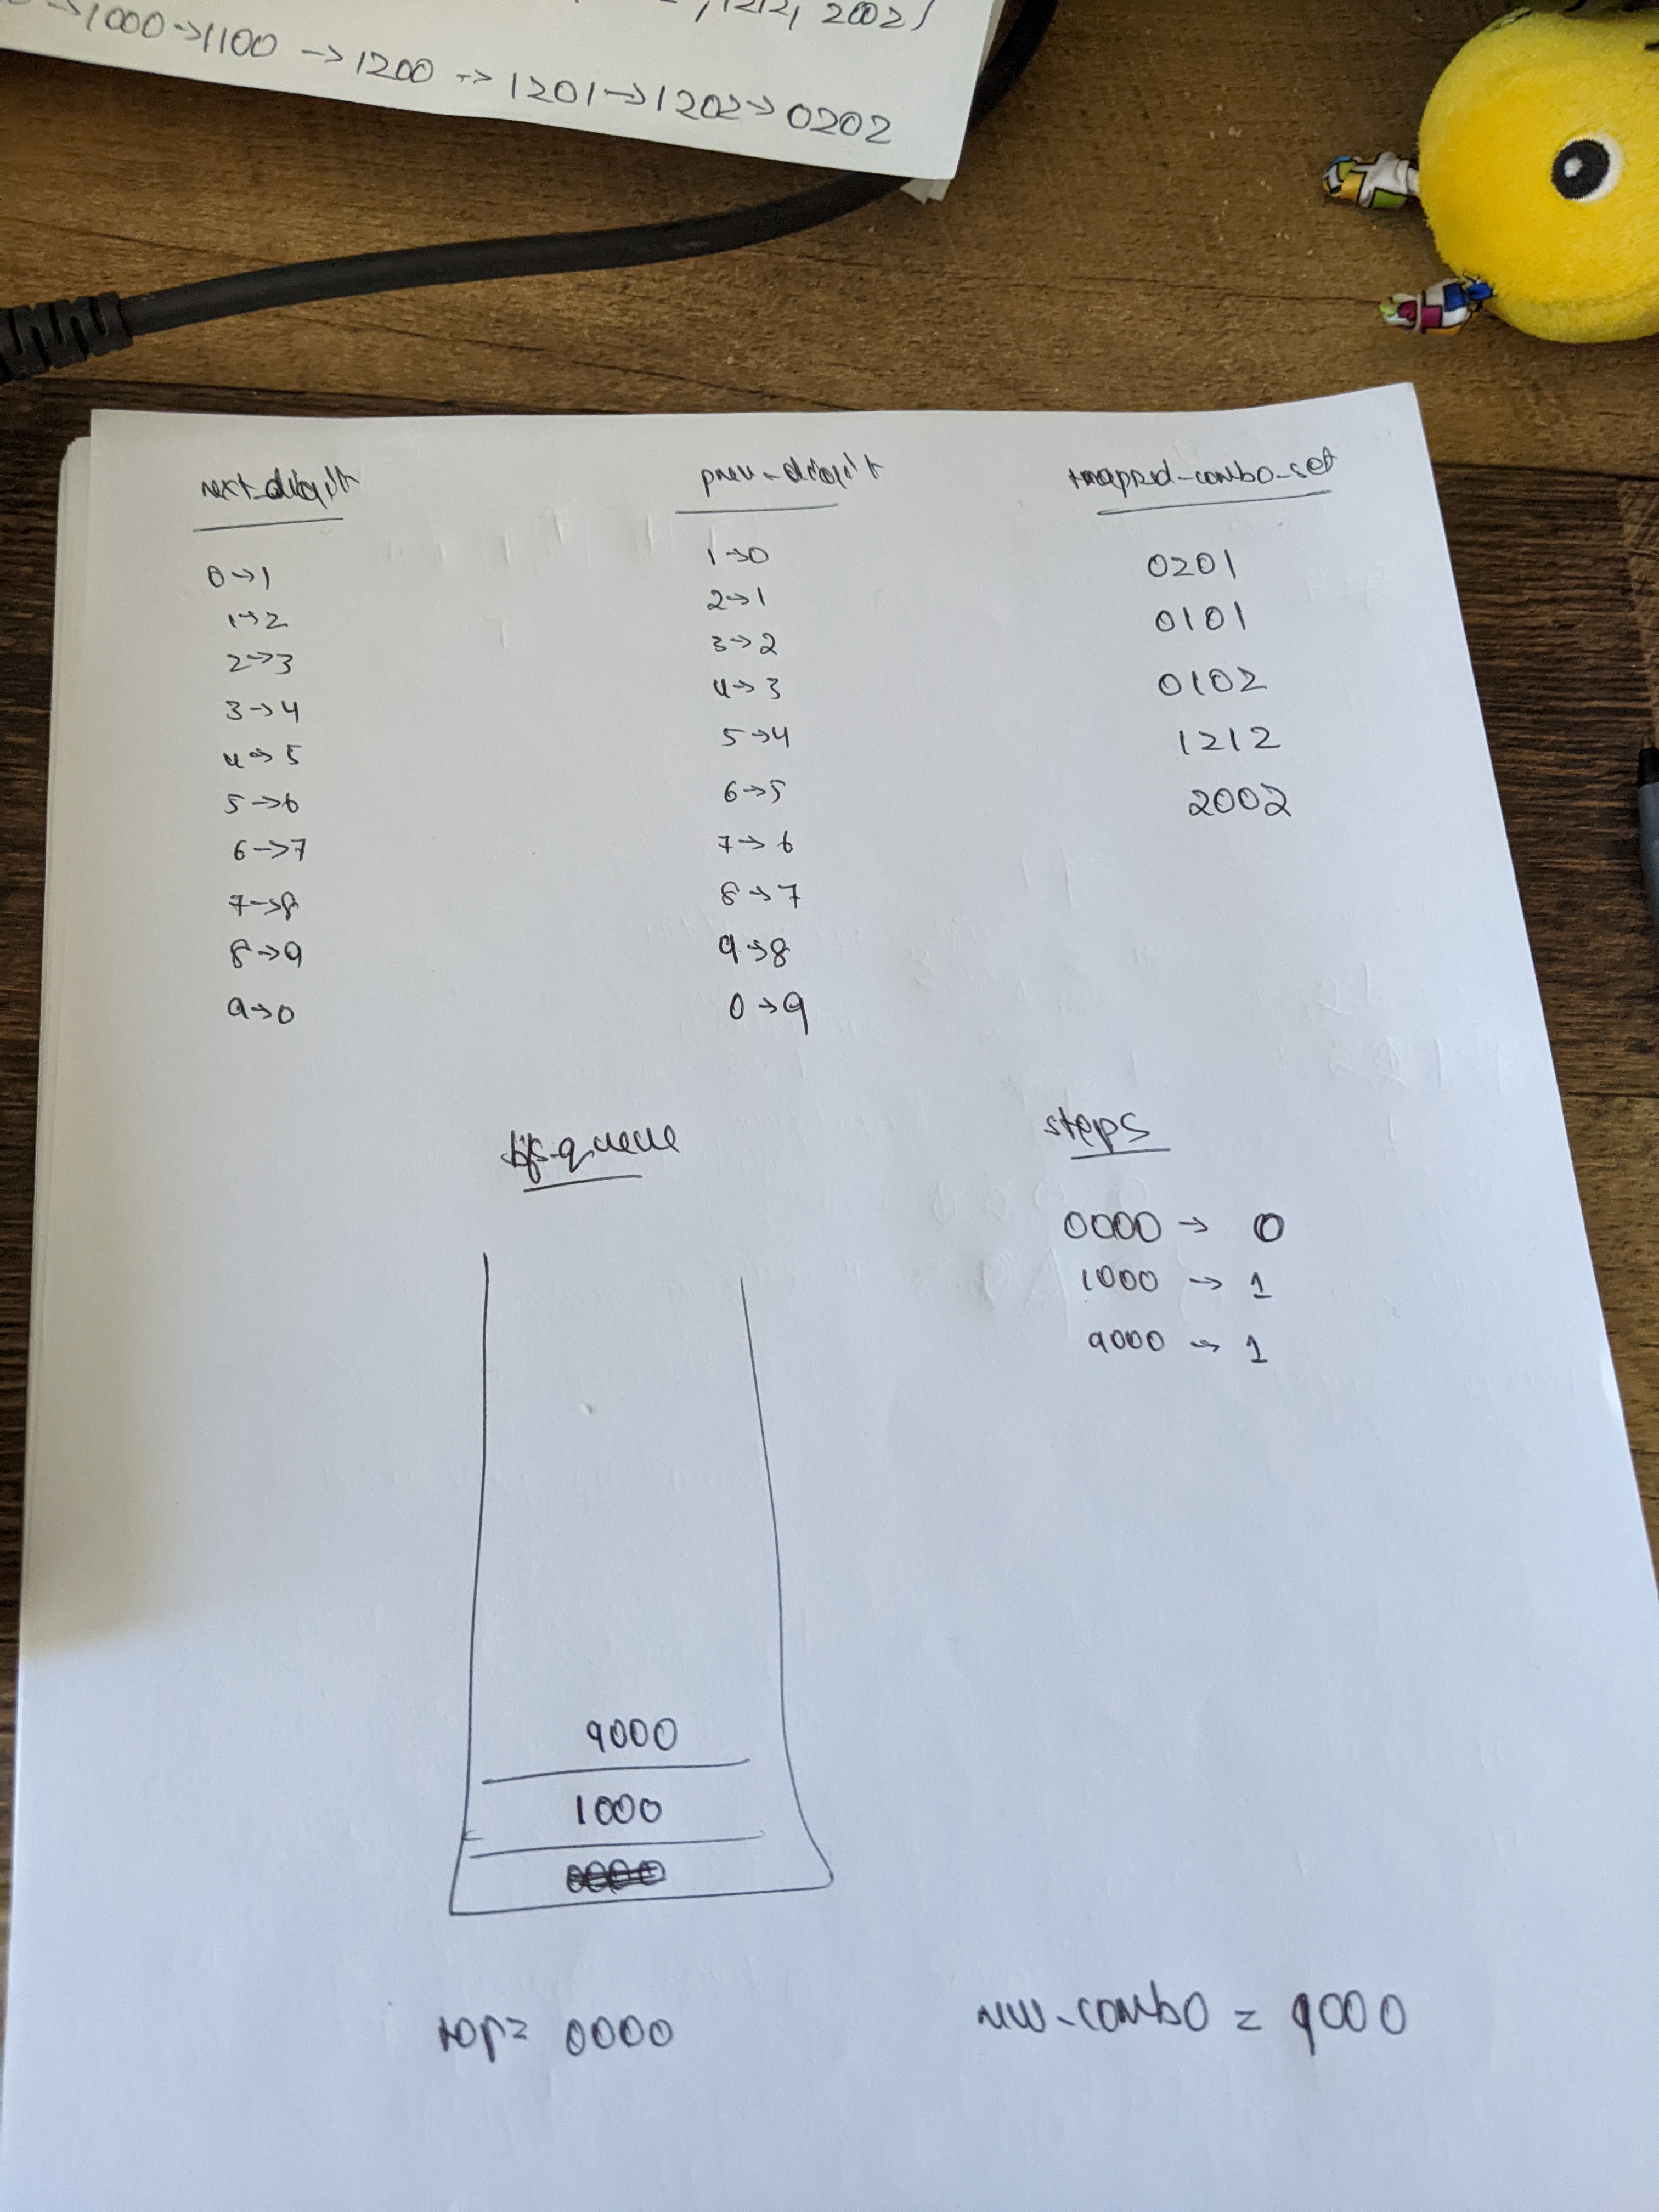 , 1212, 2002}
→1000→1100 →1200 →1201→1202→0202
next_digit
0→1
1→2
2→3
3→4
4→5
5→6
6→7
7→8
8→9
9→0
prev_digit
1→0
2→1
3→2
4→3
5→4
6→5
7→6
8→7
9→8
0→9
trapped_combo_set
0201
0101
0102
1212
2002
bfs_queue
9000
1000
0000
steps
0000 → 0
1000 → 1
9000 → 1
top= 0000
new_combo = 9000